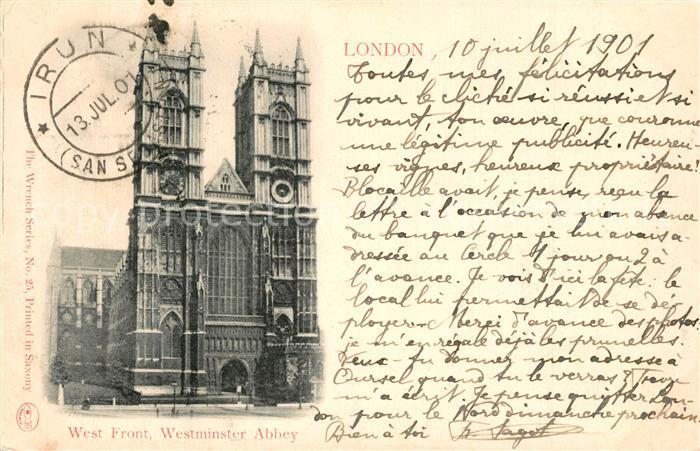 LONDON, 10 juillet 1901
Toutes mes félicitations
pour le cliché si réussi et si
vivant, ton œuvre, que couronne
une légitime publicité. Heureu-
ses vignes, heureux propriétaire!
Blocaille avait, je pense, reçu la
lettre à l'occasion de mon absence
du banquet que je lui avais a-
dressée au Cercle 1 jour ou 2 à
l'avance. Je vois d'ici la fête: le
local lui permettait de se dé-
ployer. Merci d'avance des photos,
je m'en régale déjà les prunelles.
Peux-tu donner mon adresse à
Oursel quand tu le verras?
m'a écrit. Je pense quitter Lon-
don pour le Nord dimanche prochain.
Bien à toi
IRUN
13 JUL 01
(SAN SE
The Wrench Series, No. 25, Printed in Saxony
West Front, Westminster Abbey